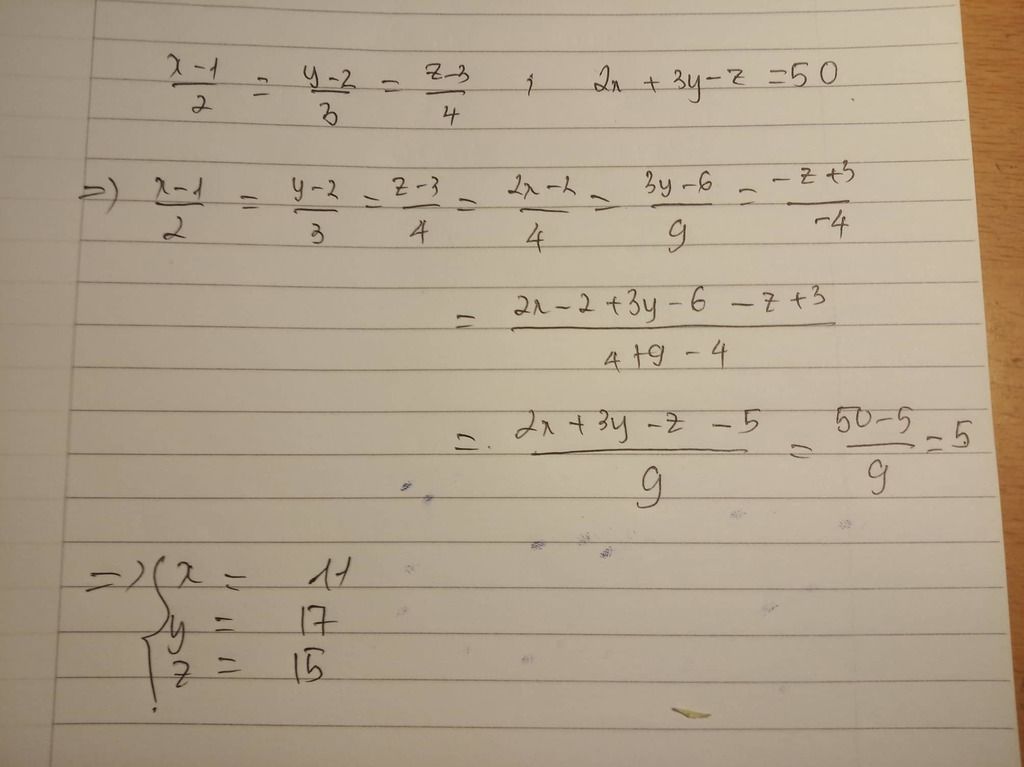 x-1/2 = y-2/3 = z-3/4 ; 2x + 3y - z = 50
=> x-1/2 = y-2/3 = z-3/4 = 2x-2/4 = 3y-6/9 = -z+3/-4
= 2x-2+3y-6-z+3/4+9-4
= 2x+3y-z-5/9 = 50-5/9 = 5
=> { x = 11
y = 17
z = 15